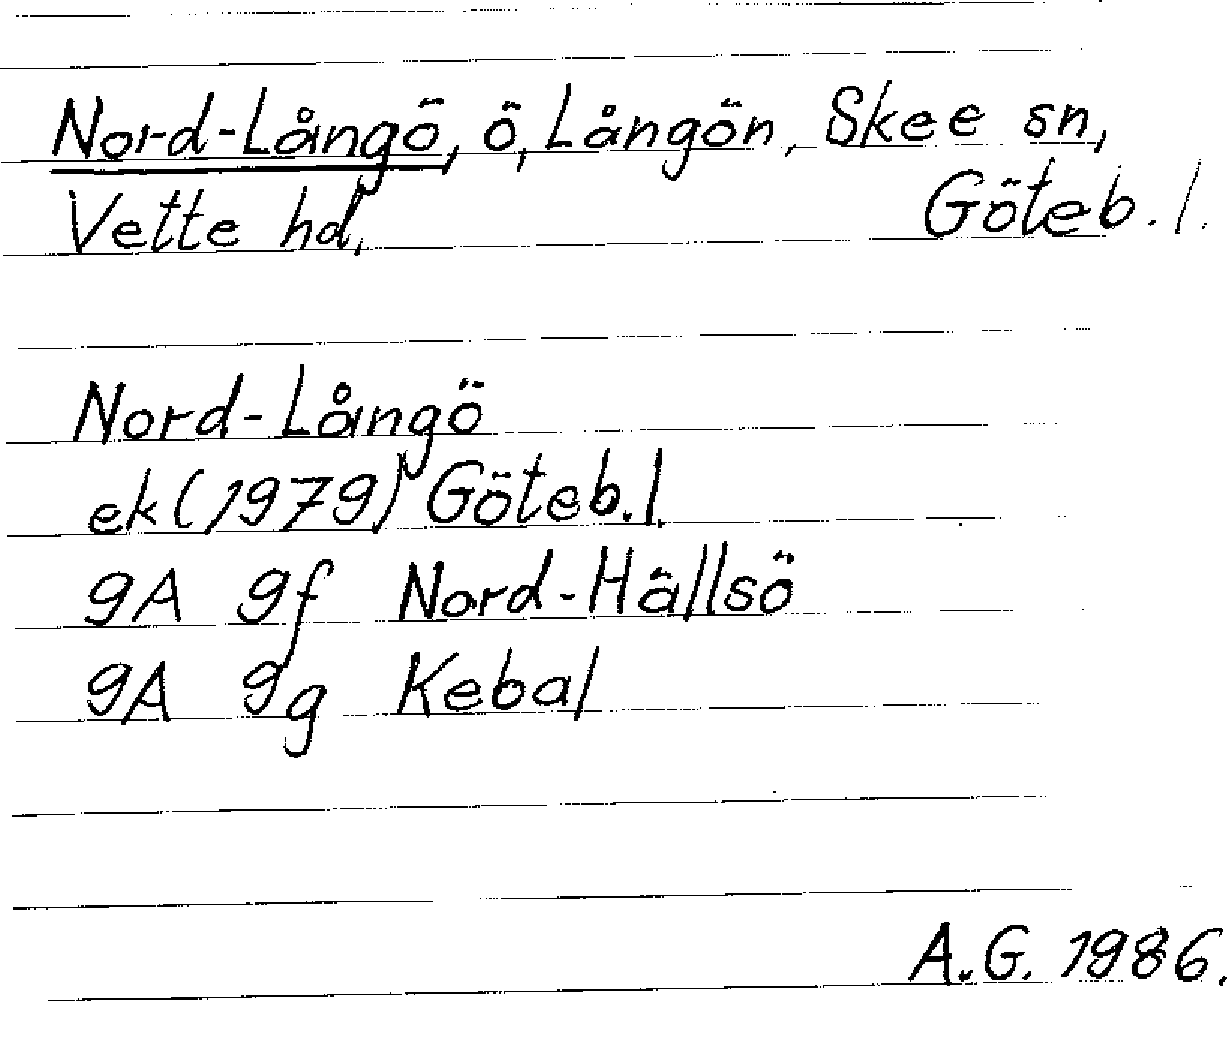 Nord-Långö, ö, Långön, Skee sn,
Vette hd, Göteb. l.
Nord-Långö
ek (1979) Göteb. l.
9A 9f Nord-Hällsö
9A 9g Kebal
A.G. 1986.